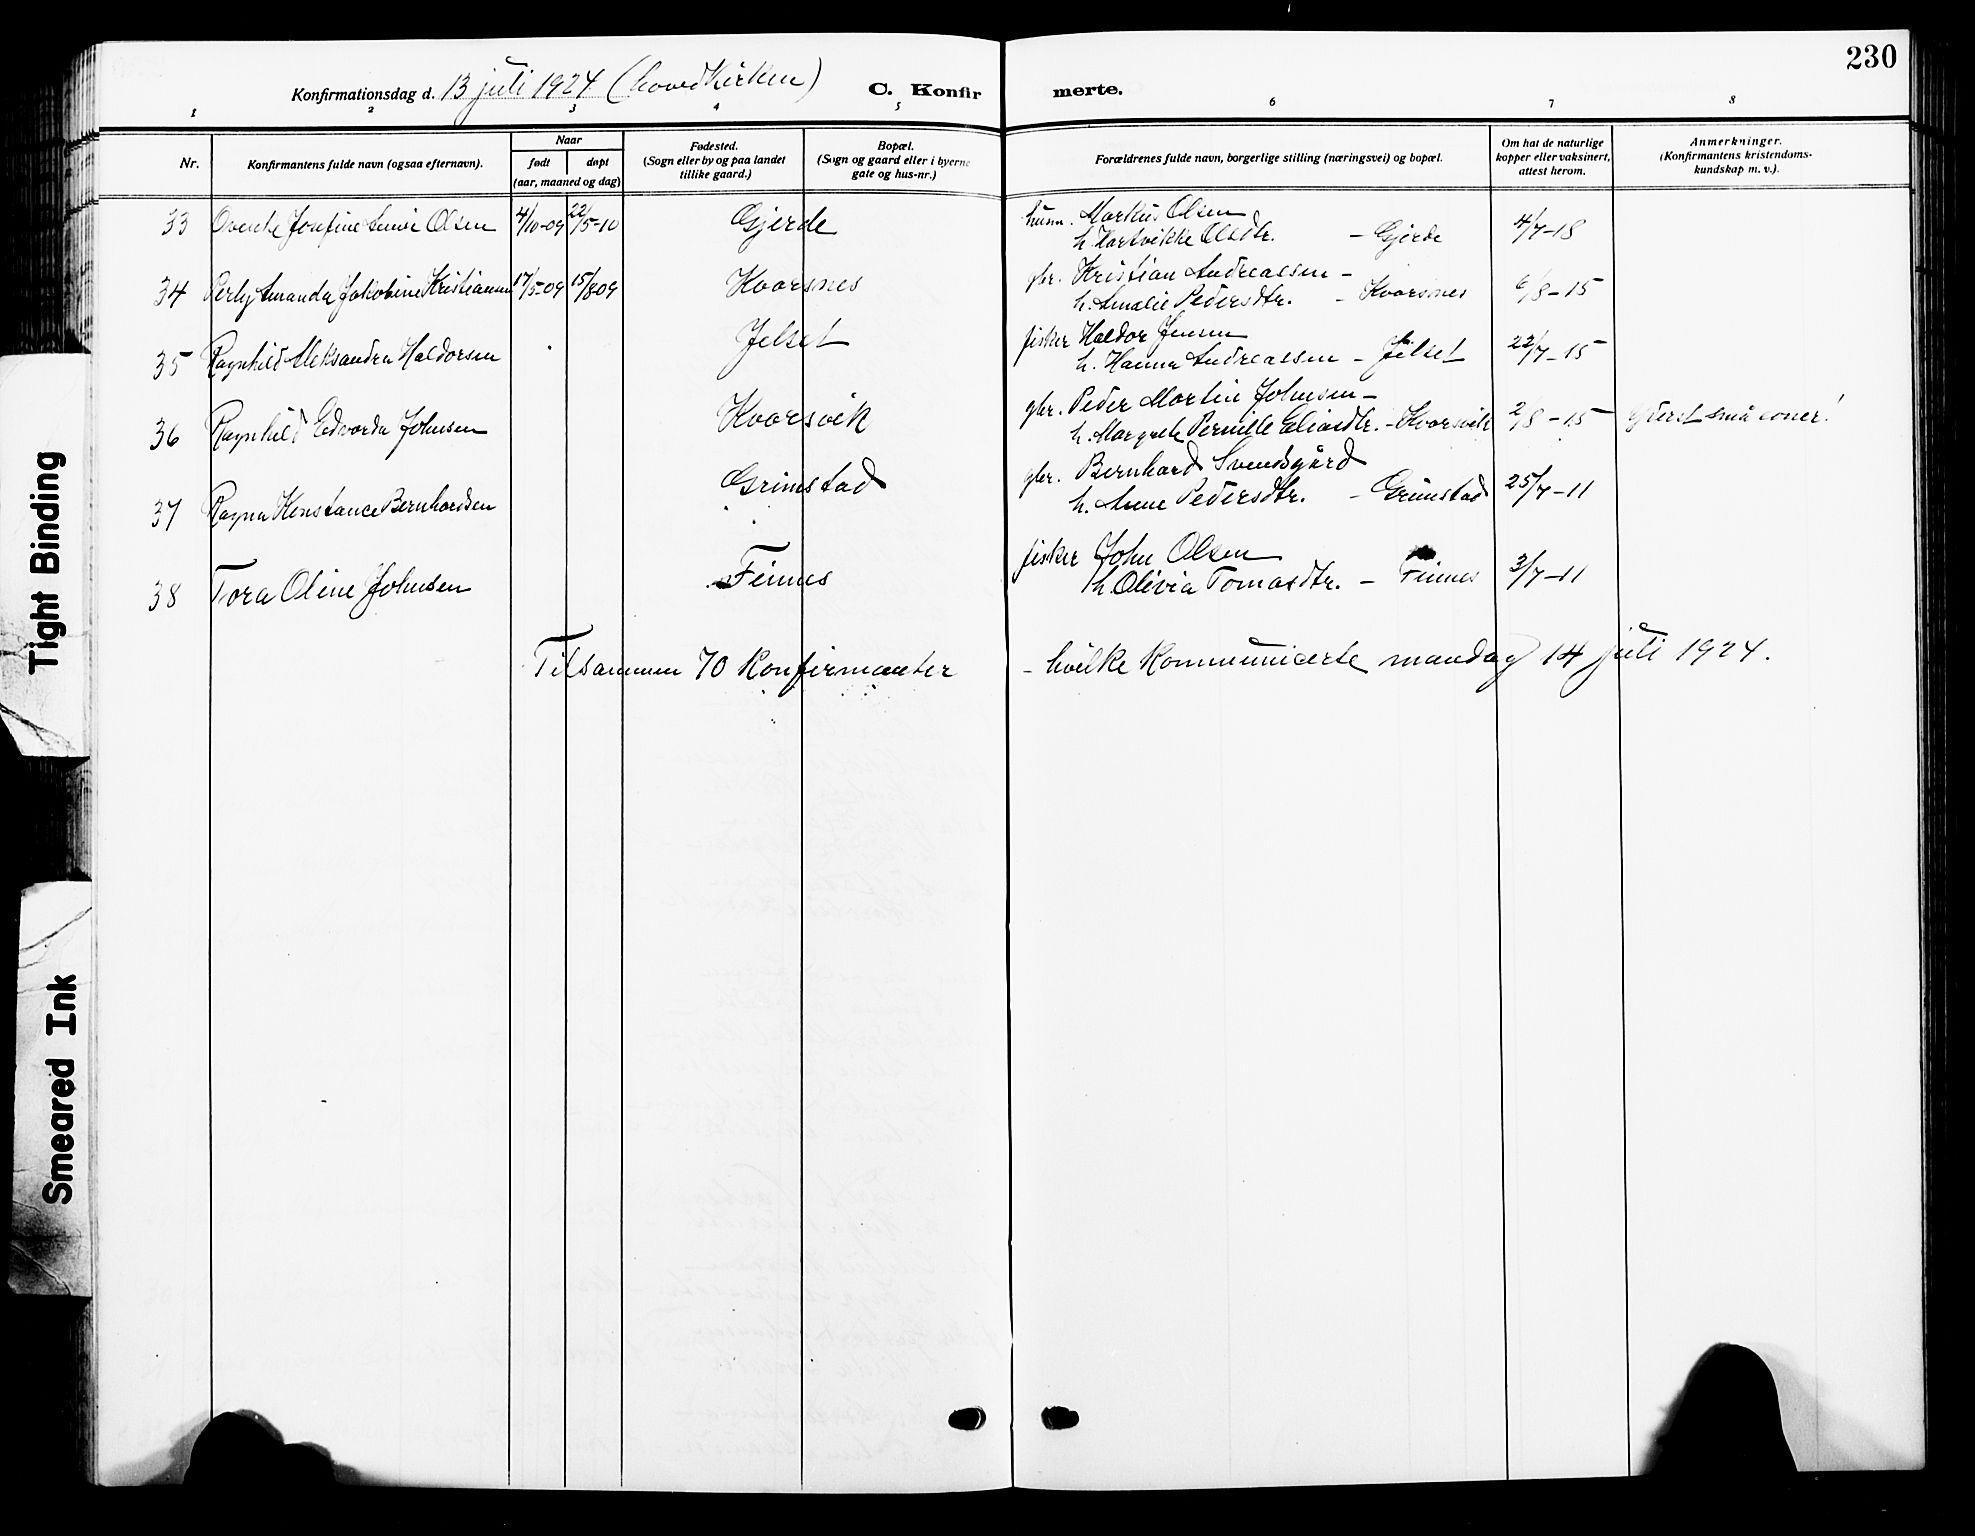 230
Konfirmationsdag d. 13 juli 1924 (hovedkirken)
C. Konfirmerte.
1 2 3 4 5 6 7 8
Nr.
Konfirmantens fulde navn (ogsaa efternavn).
Naar
født døpt
(aar, maaned og dag)
Fødested.
(Sogn eller by og paa landet
tillike gaard.)
Bopæl.
(Sogn og gaard eller i byerne
gate og hus-nr.)
Forældrenes fulde navn, borgerlige stilling (næringsvei) og bopæl.
Om hat de naturlige
kopper eller vaksinert,
attest herom.
Anmerkninger.
(Konfirmantens kristendoms-
kundskap m. v.).
33 Josefine Olsen 4/10-09 22/5-10 Gjerde husm. Markus Olsen
h. Hartvikke Olsdtr. - Gjerde 4/7-18
34 Perly Amanda Jakobine Kristiansen 17/5-09 15/8 09 Kvarsnes gbr. Kristian Andreassen -
h. Amalie Pedersdtr. - Kvarsnes 6/8-15
35 Ragnhild Aleksandra Haldorsen Jelset fisker Haldor Jensen
h. Hanna Andreassen - Jelset 22/7-15
36 Ragnhild Edvarda Johnsen Kvarsvik gbr. Peder Martin Johnsen -
h. Margrete Pernille Eliasdtr. - Kvarsvik 2/8-15 små evner!
37 Ragna Konstance Bernhardsen Grimstad gbr. Bernhard Svendsgård
h. Anne Pedersdtr. - Grimstad 25/7-11
38 Tora Oline Johnsen Finnes fisker John Olsen
h. Olivia Tomasdtr. - Finnes 3/7-11
Tilsammen 70 konfirmanter - hvilke kommunicerte mandag 14 juli 1924.
Tight Binding
Smeared Ink